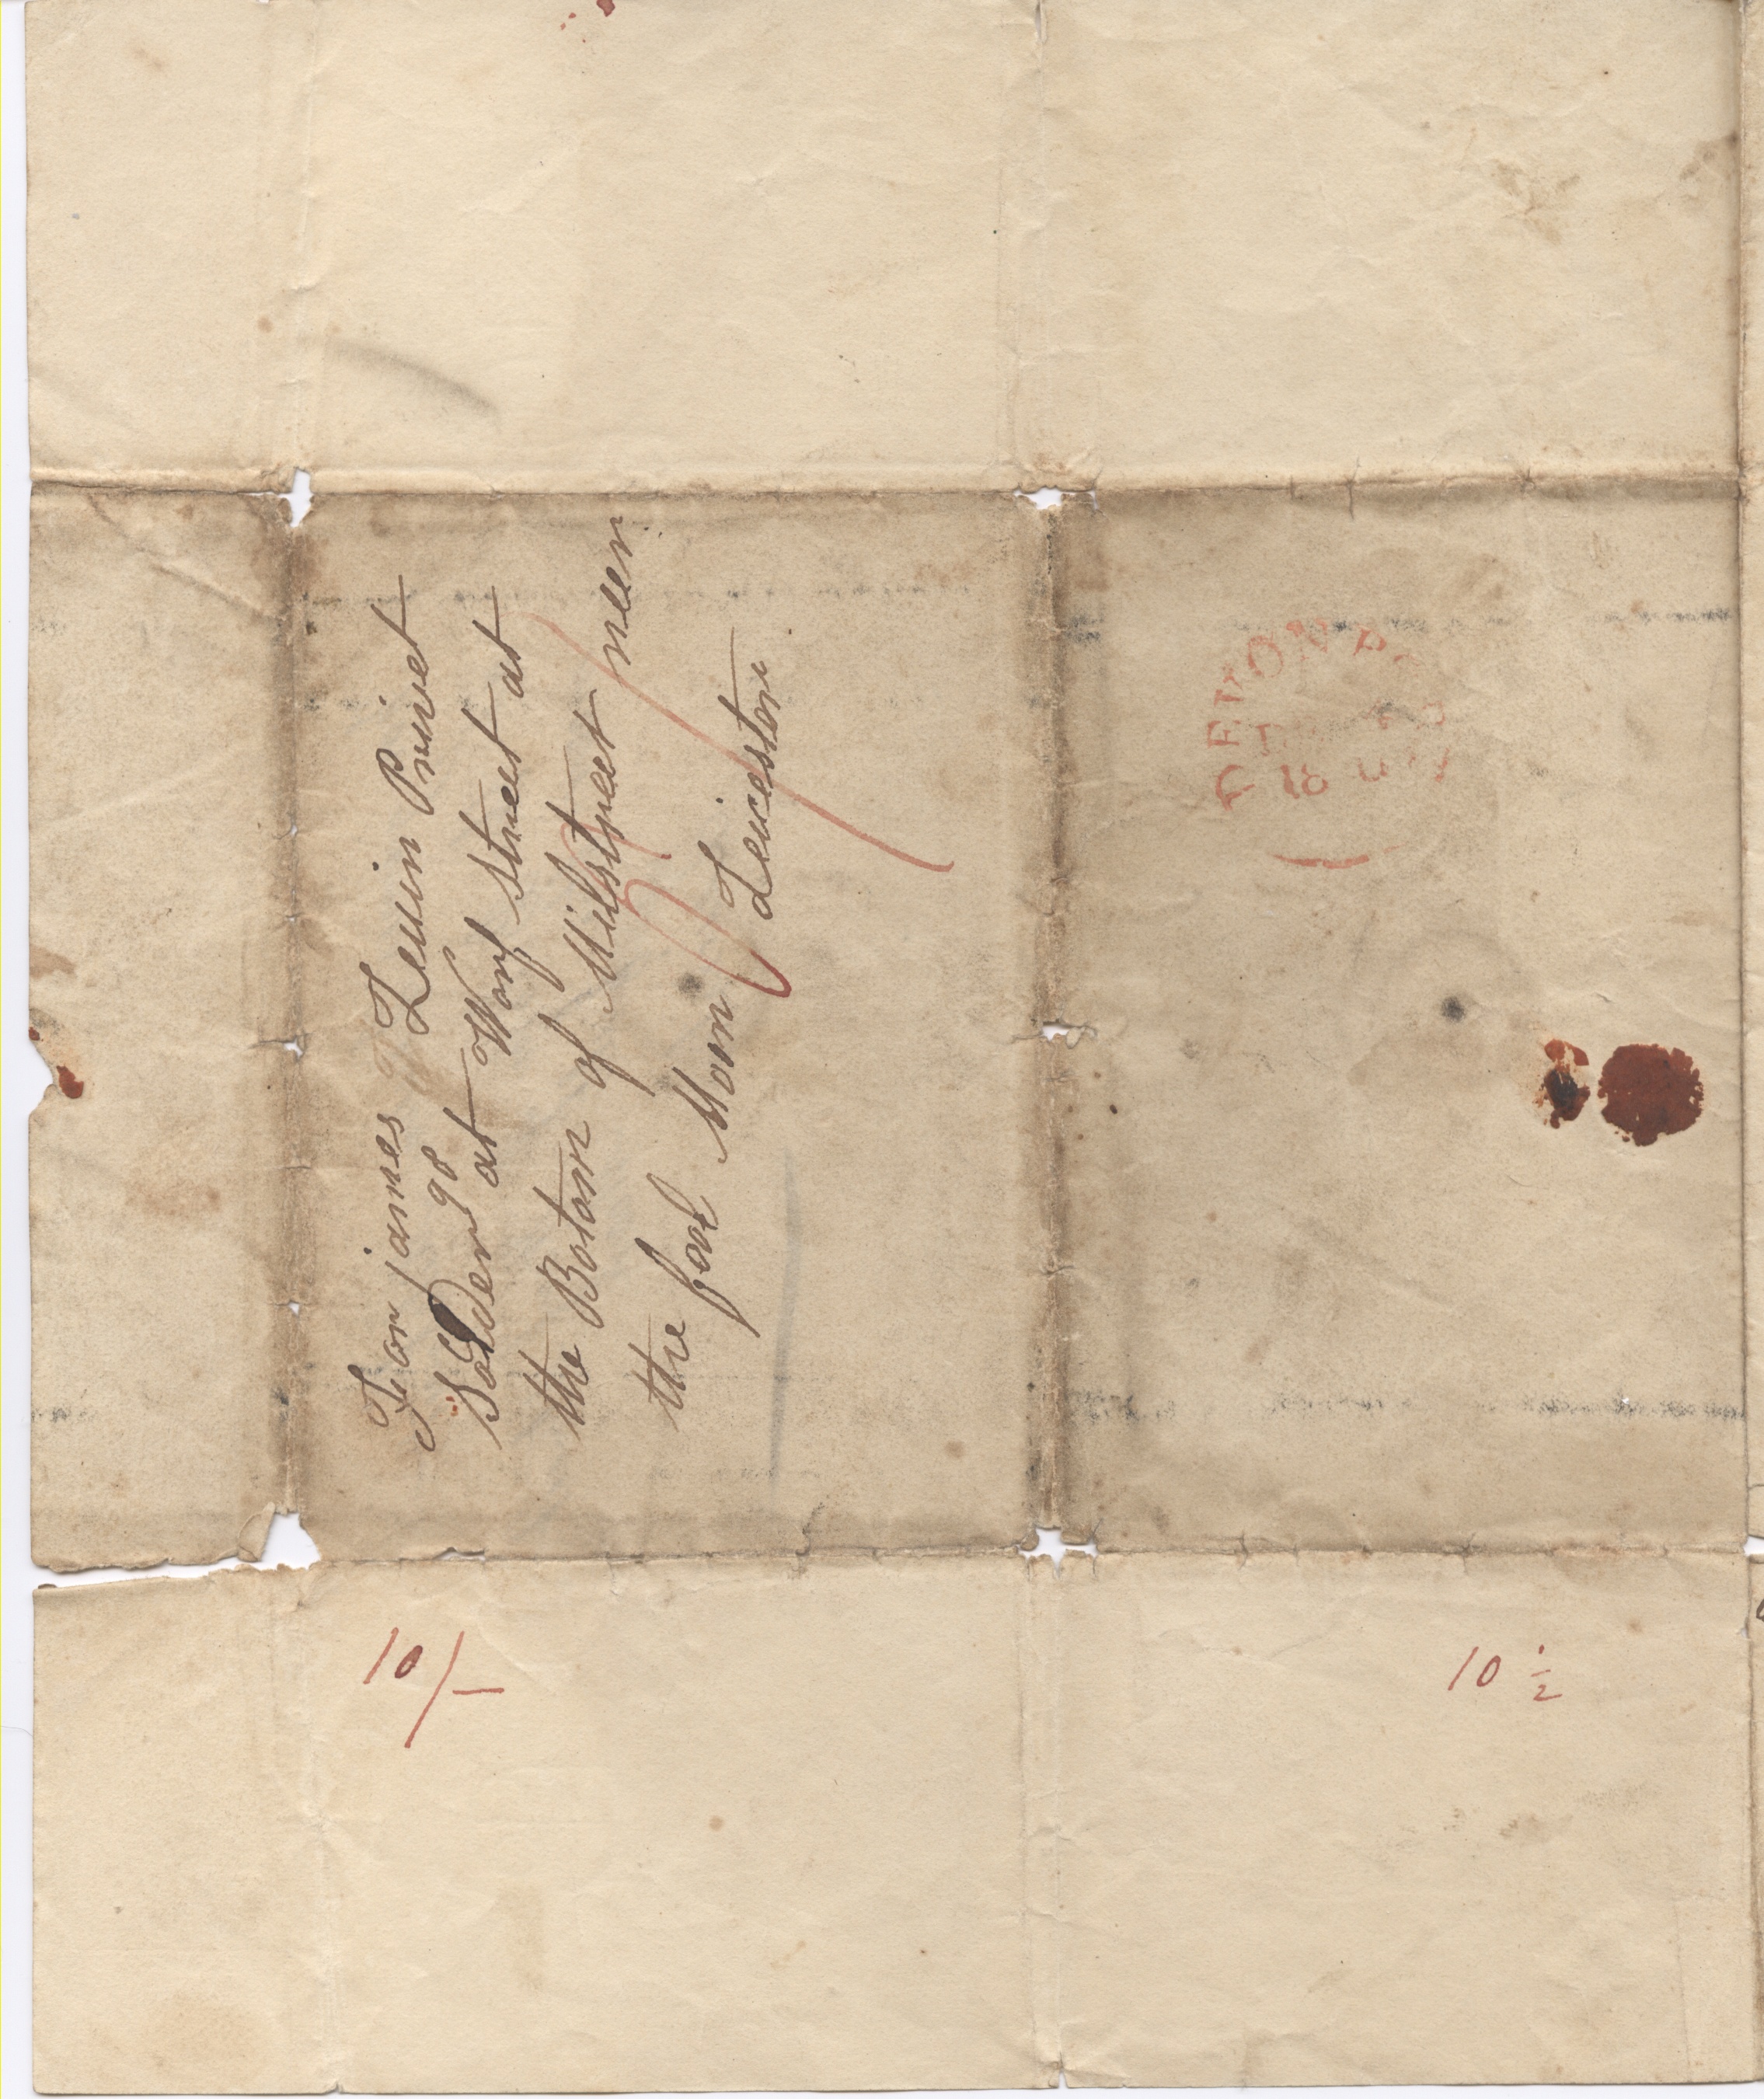 For james Lewin Privet
Solder 98
at Worf street at
the Botom of Milstreet neer
the fook Morn Leicestor
DEVONPO
18
10/-
10 1/2